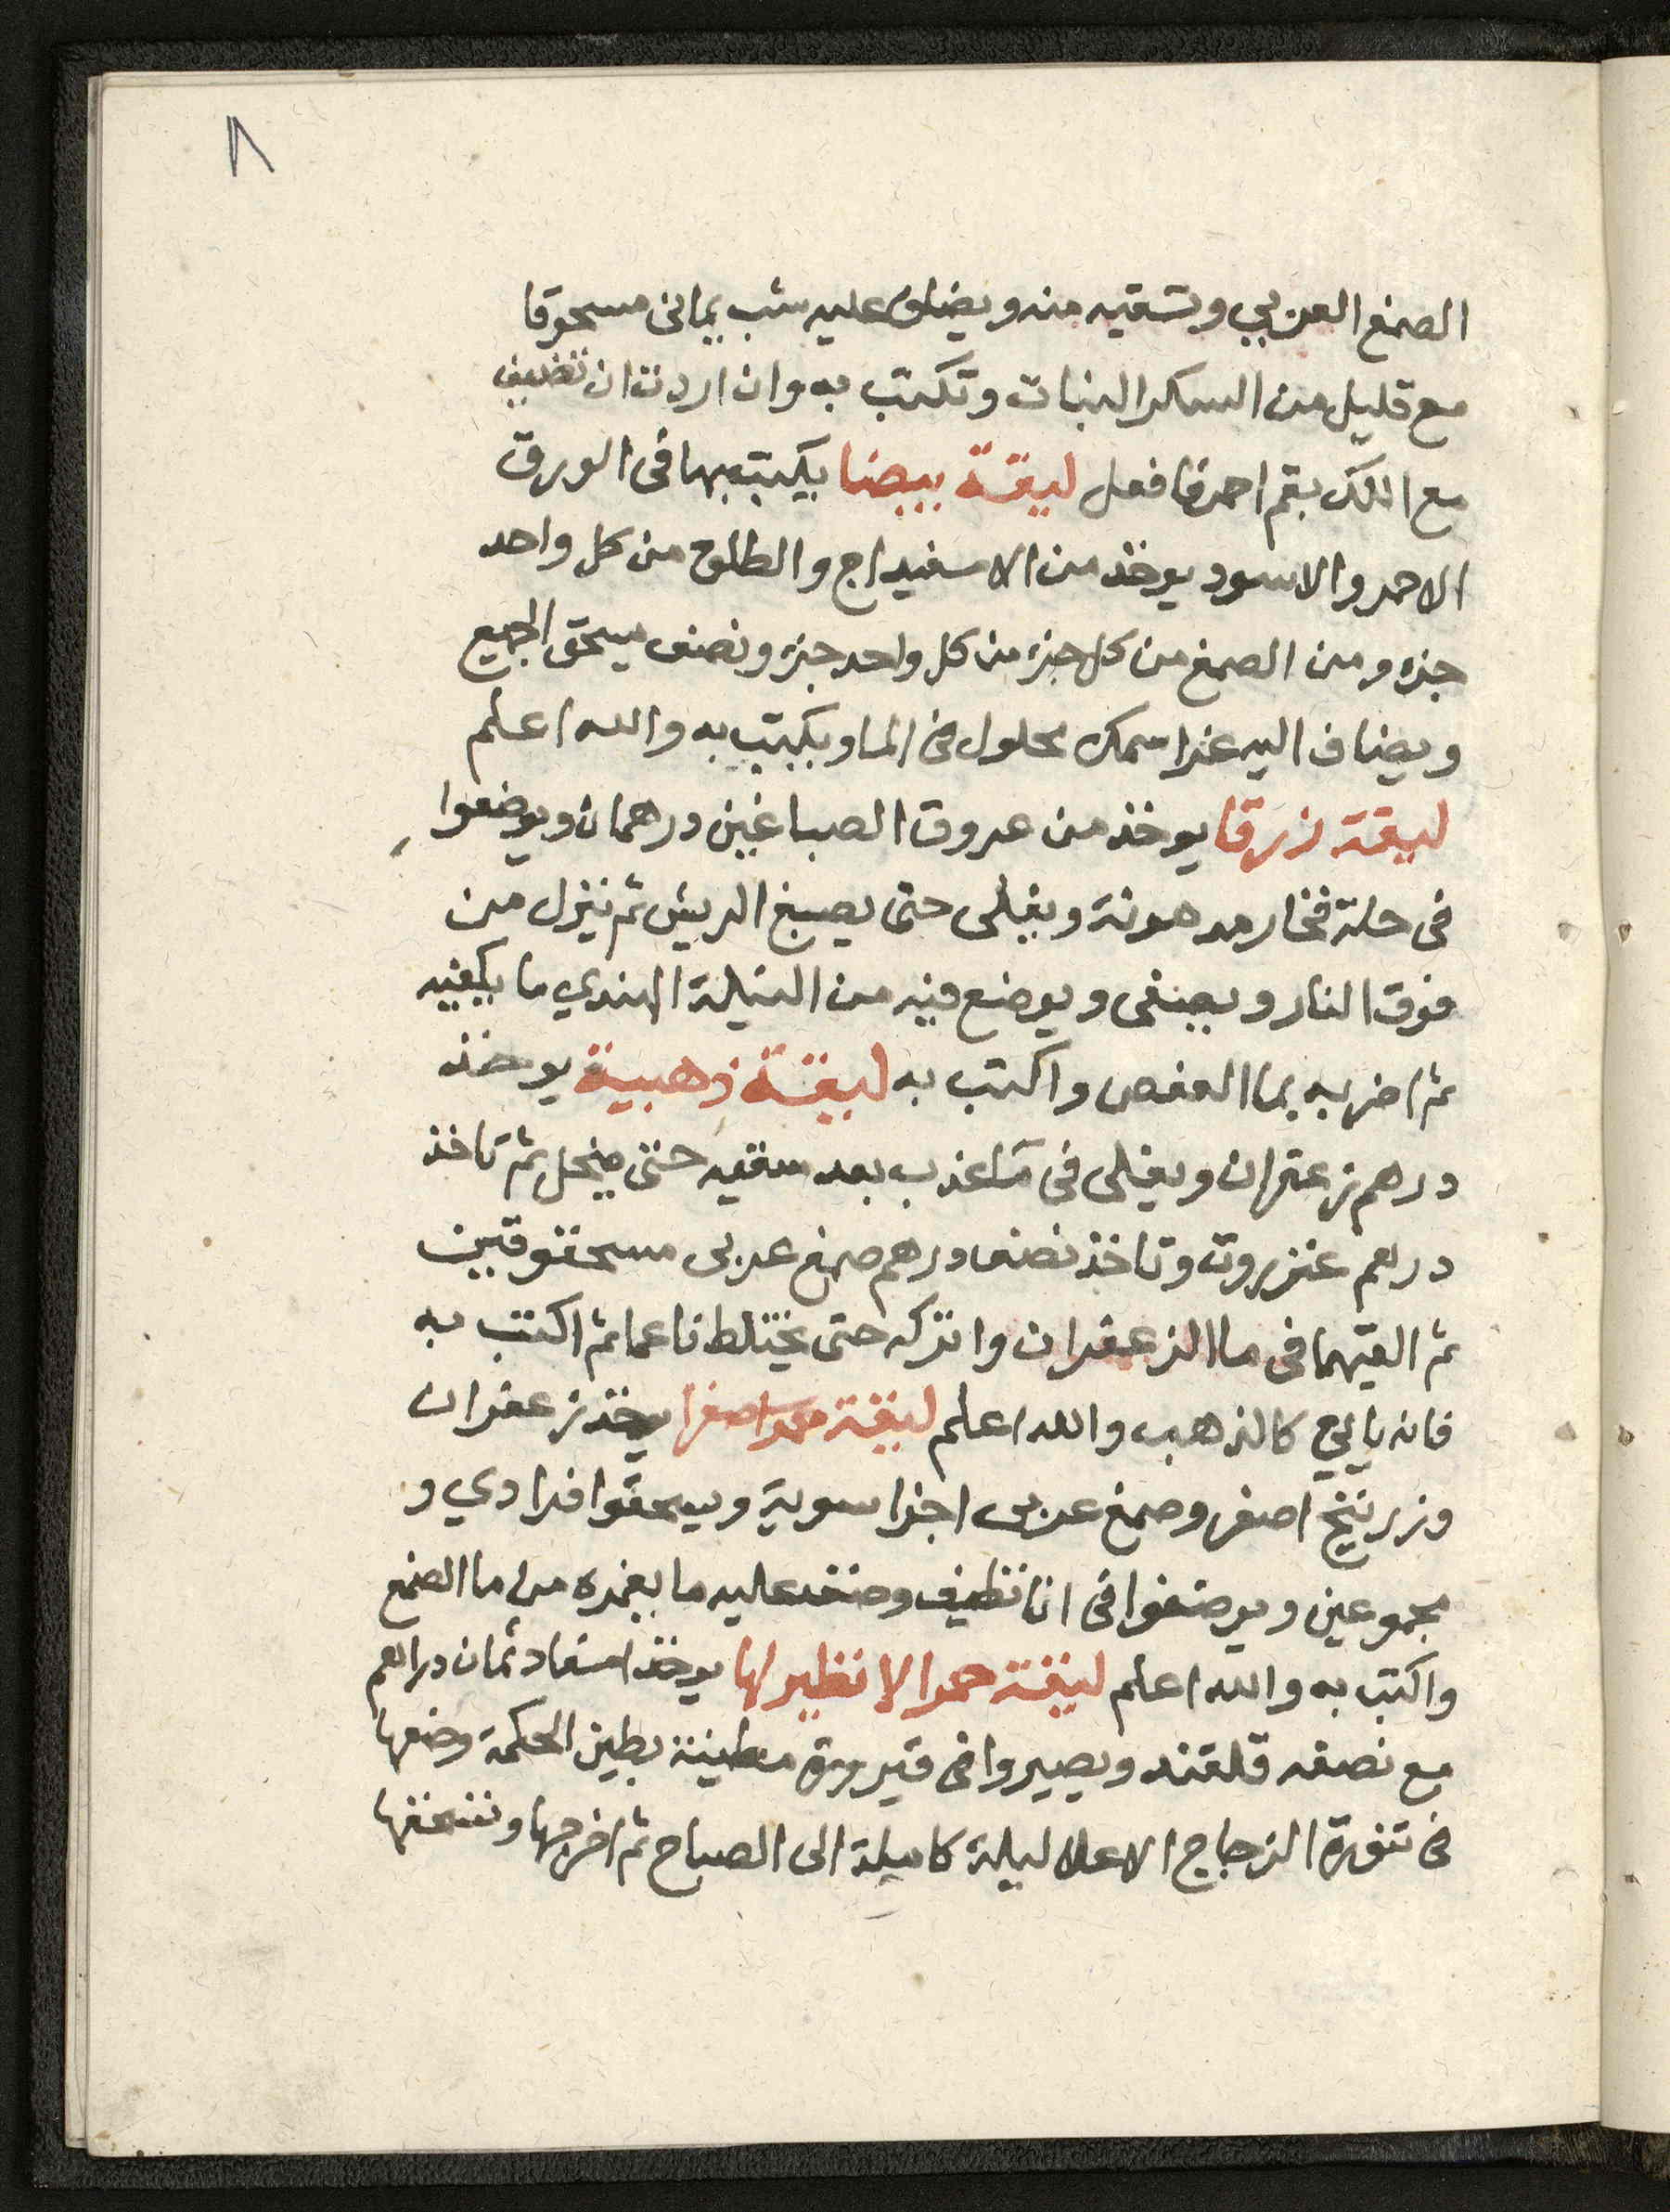 ٨
الصمغ العربي وتسقيه منه ويضاف عليه شب يمانى مسحوقا
مع قليل من السكر النبات وتكتب به وان اردت ان تضيف
مع اللك بقم احمر فافعل ليقة بيضا يكتب بها فى الورق
الاحمر والاسود يوخذ من الاسفيداج والطلق من كل واحد
جزء ومن الصمغ من كل جزء من كل واحد جزء ونصف يسحق الجميع
ويضاف اليه غرا سمك محلول فى الما ويكتب به والله اعلم
ليقة زرقا يوخذ من عروق الصباغين درهمان ويوضعوا
فى حلة فخار مدهونة ويغلى حتى يصبغ الريش ثم ينزل من
فوق النار ويصفى ويوضع فيه من النيلة الهندي ما يكفيه
ثم اضربه بما العفص واكتب به ليقة ذهبية يوخذ
درهم زعفران ويغلى فى مآ عذب بعد سقيه حتى ينحل ثم تاخذ
درهم عنزروت وتاخذ نصف درهم صمغ عربى مسحوقين
ثم القيهما فى ما الزعفران واتركه حتى يختلط ناعما ثم اكتب به
فانه ياتي كالذهب والله اعلم ليقة صفرا يوخذ زعفران
وزرنيخ اصفر وصمغ عربى اجزا سوية ويسحقوا فرادي و
مجموعين ويوضعوا فى انا نظيف وصف عليه ما يغمره من ما الصمغ
واكتب به والله اعلم ليقة حمرا لا نظير لها يوخذ اسفاد ثمان دراهم
مع نصفه قلقند ويصيروا فى قيرورة مطينة بطين الحكمة وضعها
فى تنورة الزجاج الاعلا ليلة كاميلة الى الصباح ثم اخرجها وتسحقها